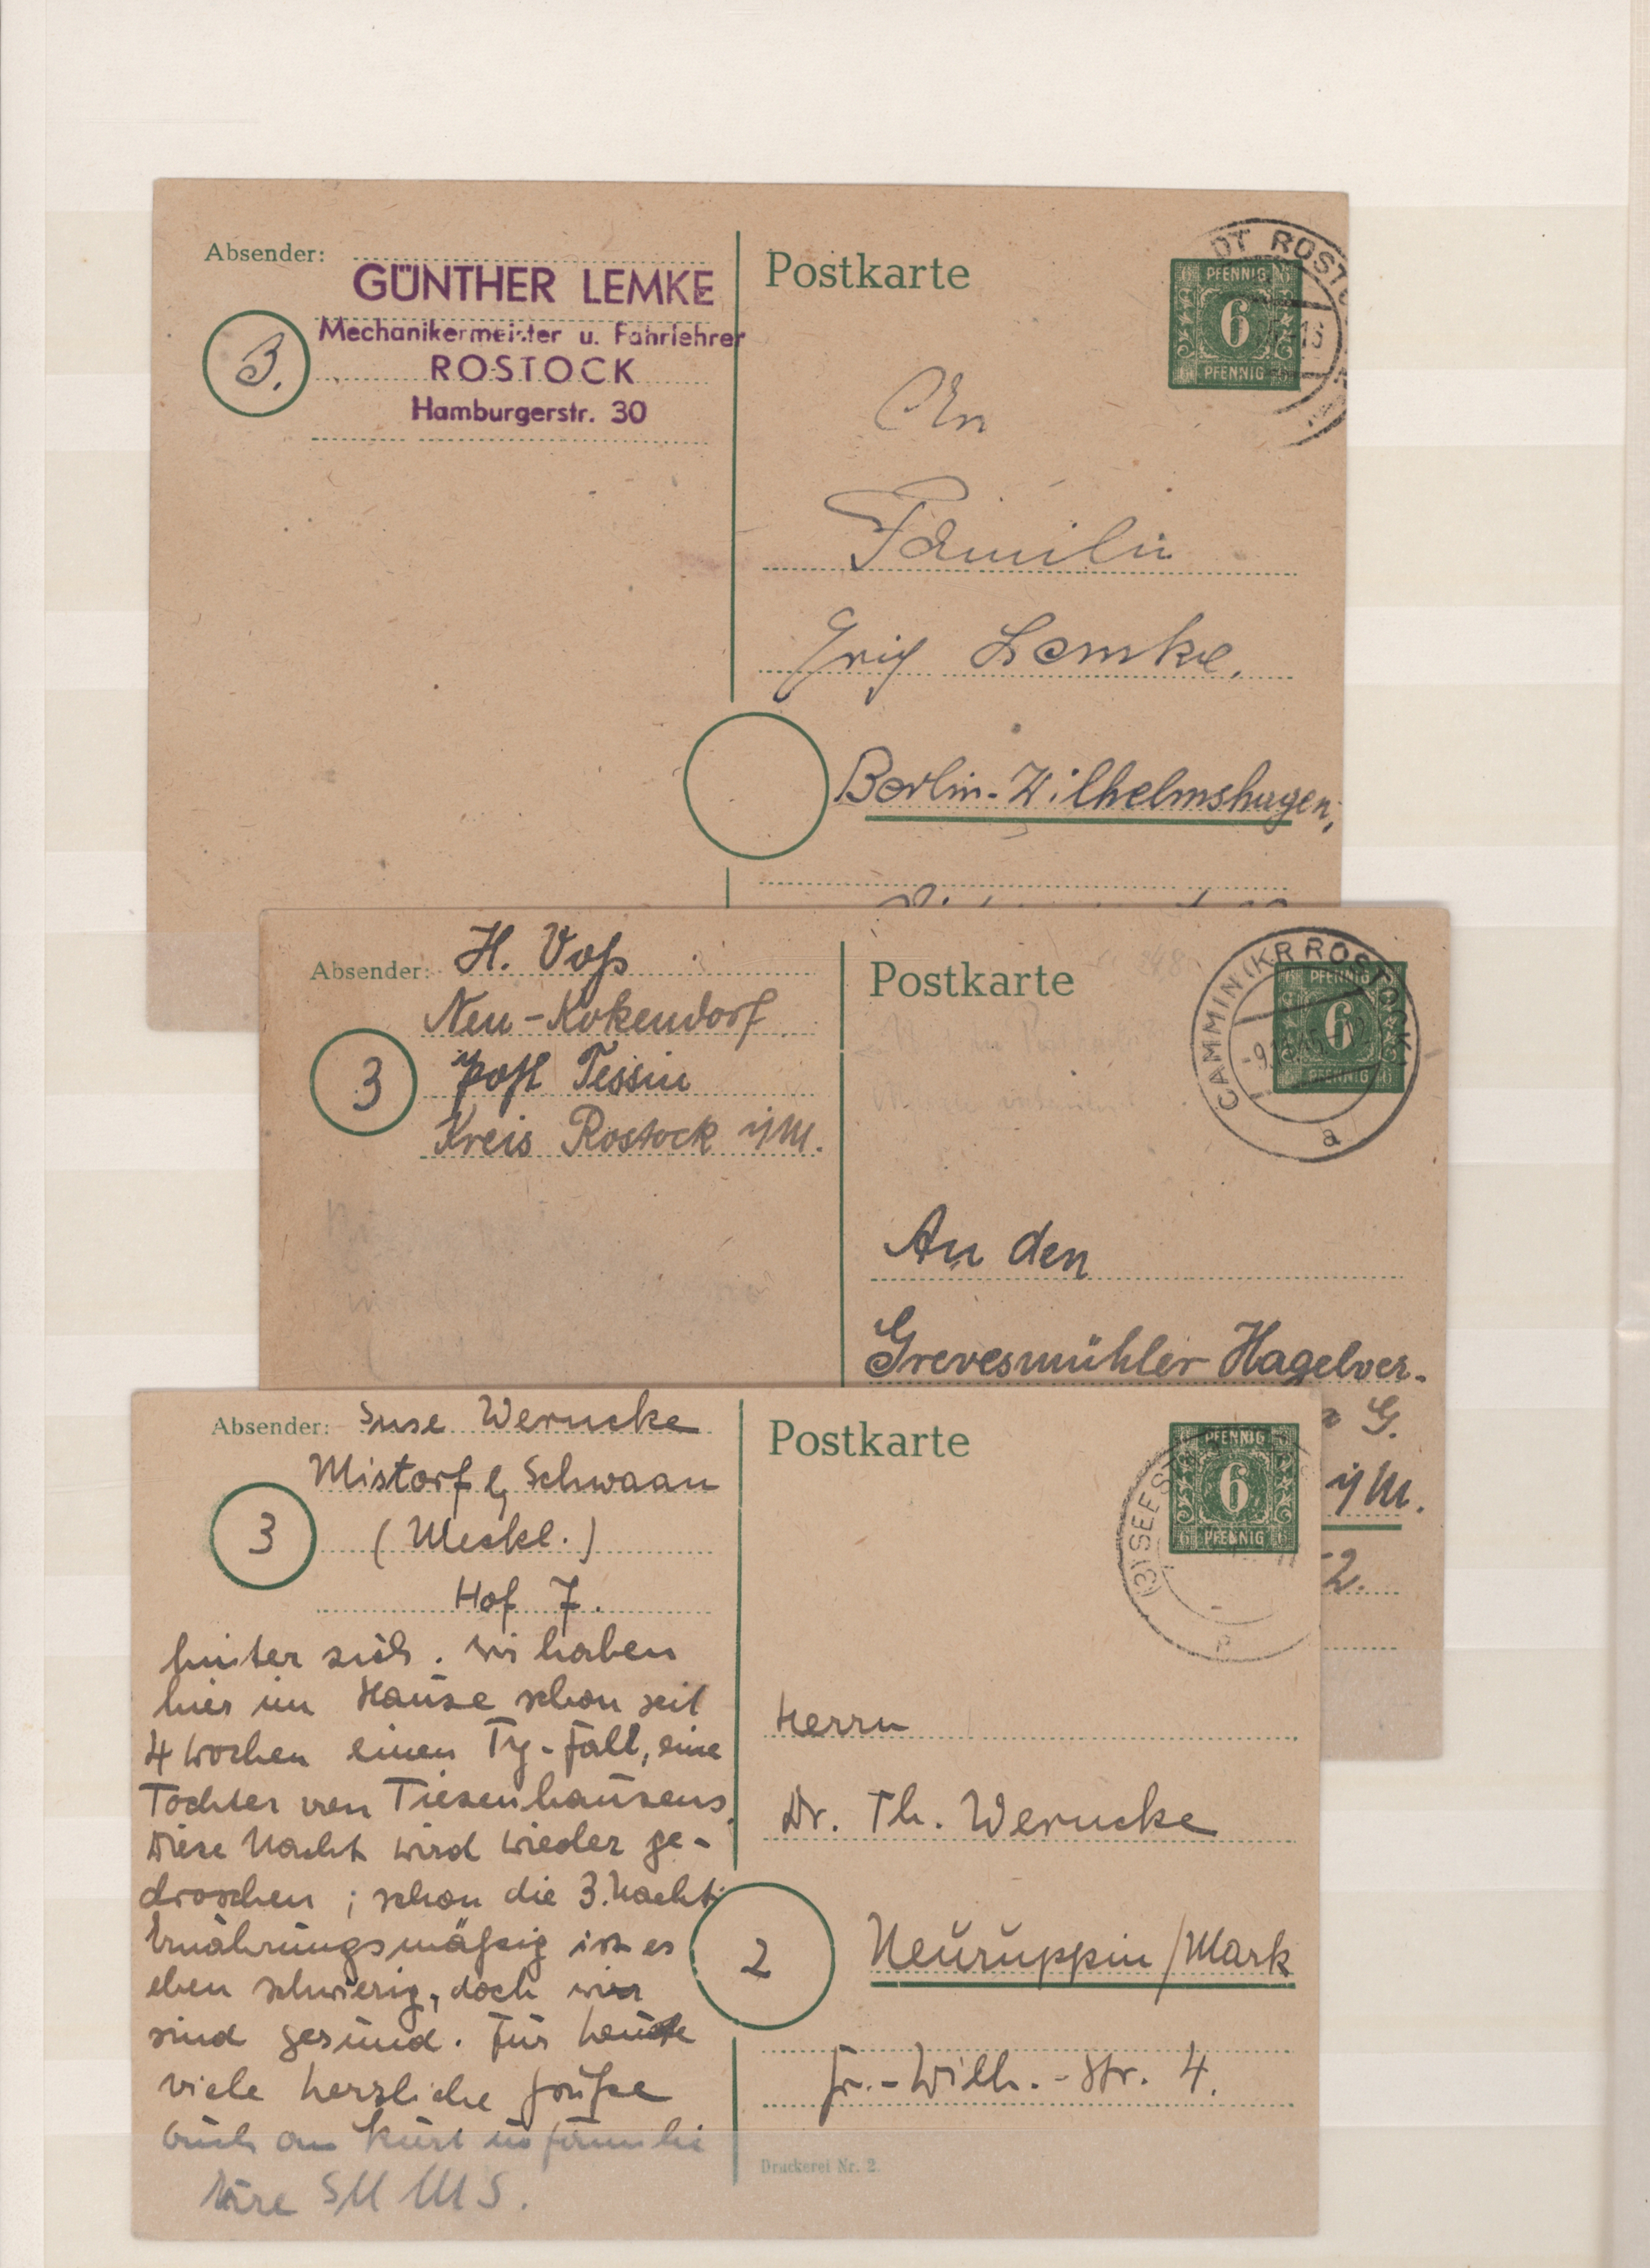 Absender:
GÜNTHER LEMKE
Mechanikermeister u. Fahrlehrer
ROSTOCK
Hamburgerstr. 30
3.
Postkarte
DT ROSTO
PFENNIG
6
PFENNIG
An
Familie
Lemke,
Berlin-Wilhelmshagen,
Absender:
H. Voß
Neu-Kokendorf
Post Tessin
Kreis Rostock i/M.
3
Postkarte
CAMMIN (KR ROSTOCK)
a
PFENNIG
6
PFENNIG
An den
Grevesmühler Hagelver-
G.
i/M.
2.
Absender:
Suse Werncke
Mistorf b/ Schwaan
(Meckl.)
Hof 7.
3
hinter sich. Wir haben
hier im Hause schon seit
4 Wochen einen Ty-Fall, eine
Tochter von Tiesenhausens.
Diese Nacht wird wieder ge-
droschen; schon die 3. Nacht.
Ernährungsmäßig ist es
eben schwierig, doch wir
sind gesund. Für heute
viele herzliche Grüße
Euch an Kurt
Postkarte
(3) SEEST
PFENNIG
6
PFENNIG
Herrn
Dr. Th. Werncke
2
Neuruppin/Mark
Fr.-Wilh.-Str. 4.
Druckerei Nr. 2.